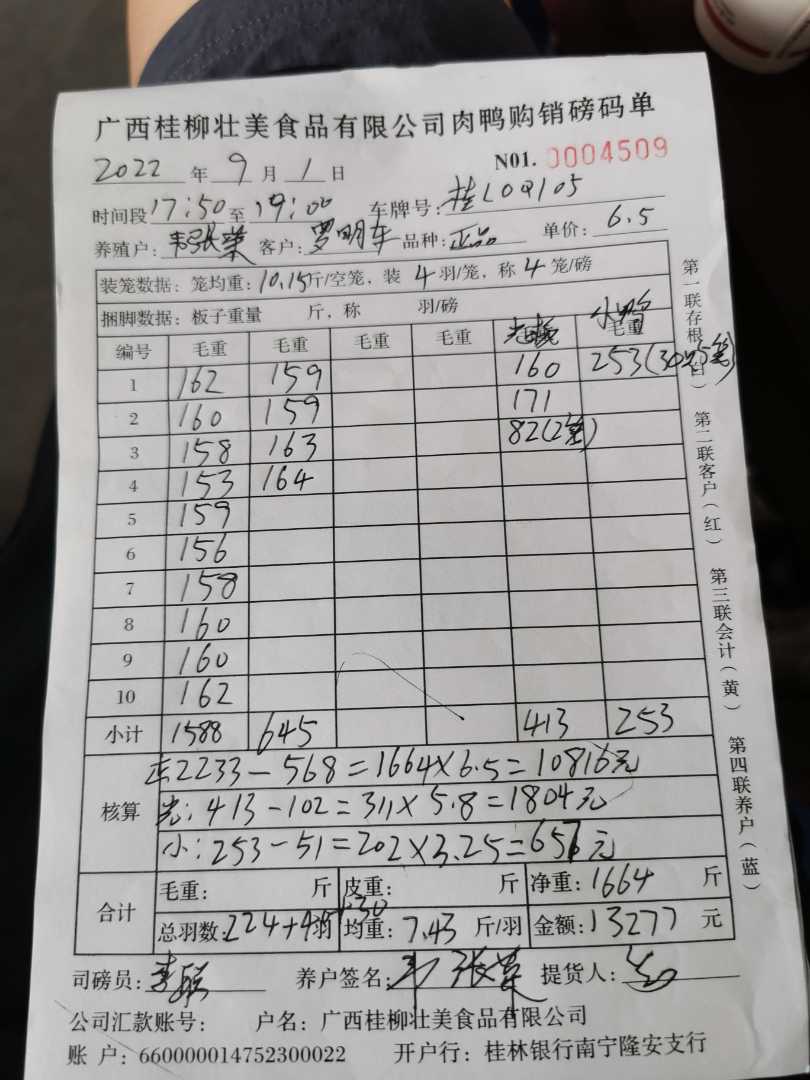 广西桂柳壮美食品有限公司肉鸭购销磅码单
2022 年 9 月 1 日 N01. 0004509
时间段 17:50 至 19:00 车牌号: 桂L0Q105
养殖户: 韦张荣 客户: 罗明车 品种: 正品 单价: 6.5
装笼数据: 笼均重: 10.15斤/空笼, 装 4 羽/笼, 称 4 笼/磅
捆脚数据: 板子重量 斤, 称 羽/磅
编号 毛重 毛重 毛重 毛重 毛重
1 162 159 160 253(30只5笼)
2 160 159 171
3 158 163 82(2笼)
4 153 164
5 159
6 156
7 158
8 160
9 160
10 162
小计 1588 645 413 253
核算
正2233-568=1664×6.5=10816元
光:413-102=311×5.8=1804元
小:253-51=202×3.25=657元
合计
毛重: 斤 皮重: 斤 净重: 1664 斤
总羽数: 224+ 羽 +30 均重: 7.43 斤/羽 金额: 13277 元
司磅员: 养户签名: 韦张荣 提货人:
公司汇款账号: 户名: 广西桂柳壮美食品有限公司
账 户: 660000014752300022 开户行: 桂林银行南宁隆安支行
第一联存根(白) 第二联客户(红) 第三联会计(黄) 第四联养户(蓝)